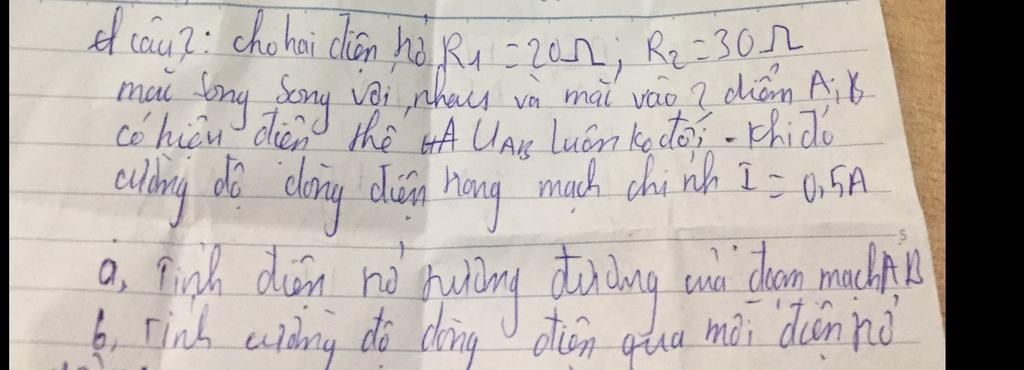 câu 2: cho hai điện trở R1 = 20Ω; R2 = 30Ω
mắc song song với nhau và mắc vào 2 điểm A; B
có hiệu điện thế UAB luôn ko đổi - khi đó
cường độ dòng điện trong mạch chính I = 0,5A
a, Tính điện trở tương đương của đoạn mạch AB
b, Tính cường độ dòng điện qua mỗi điện trở